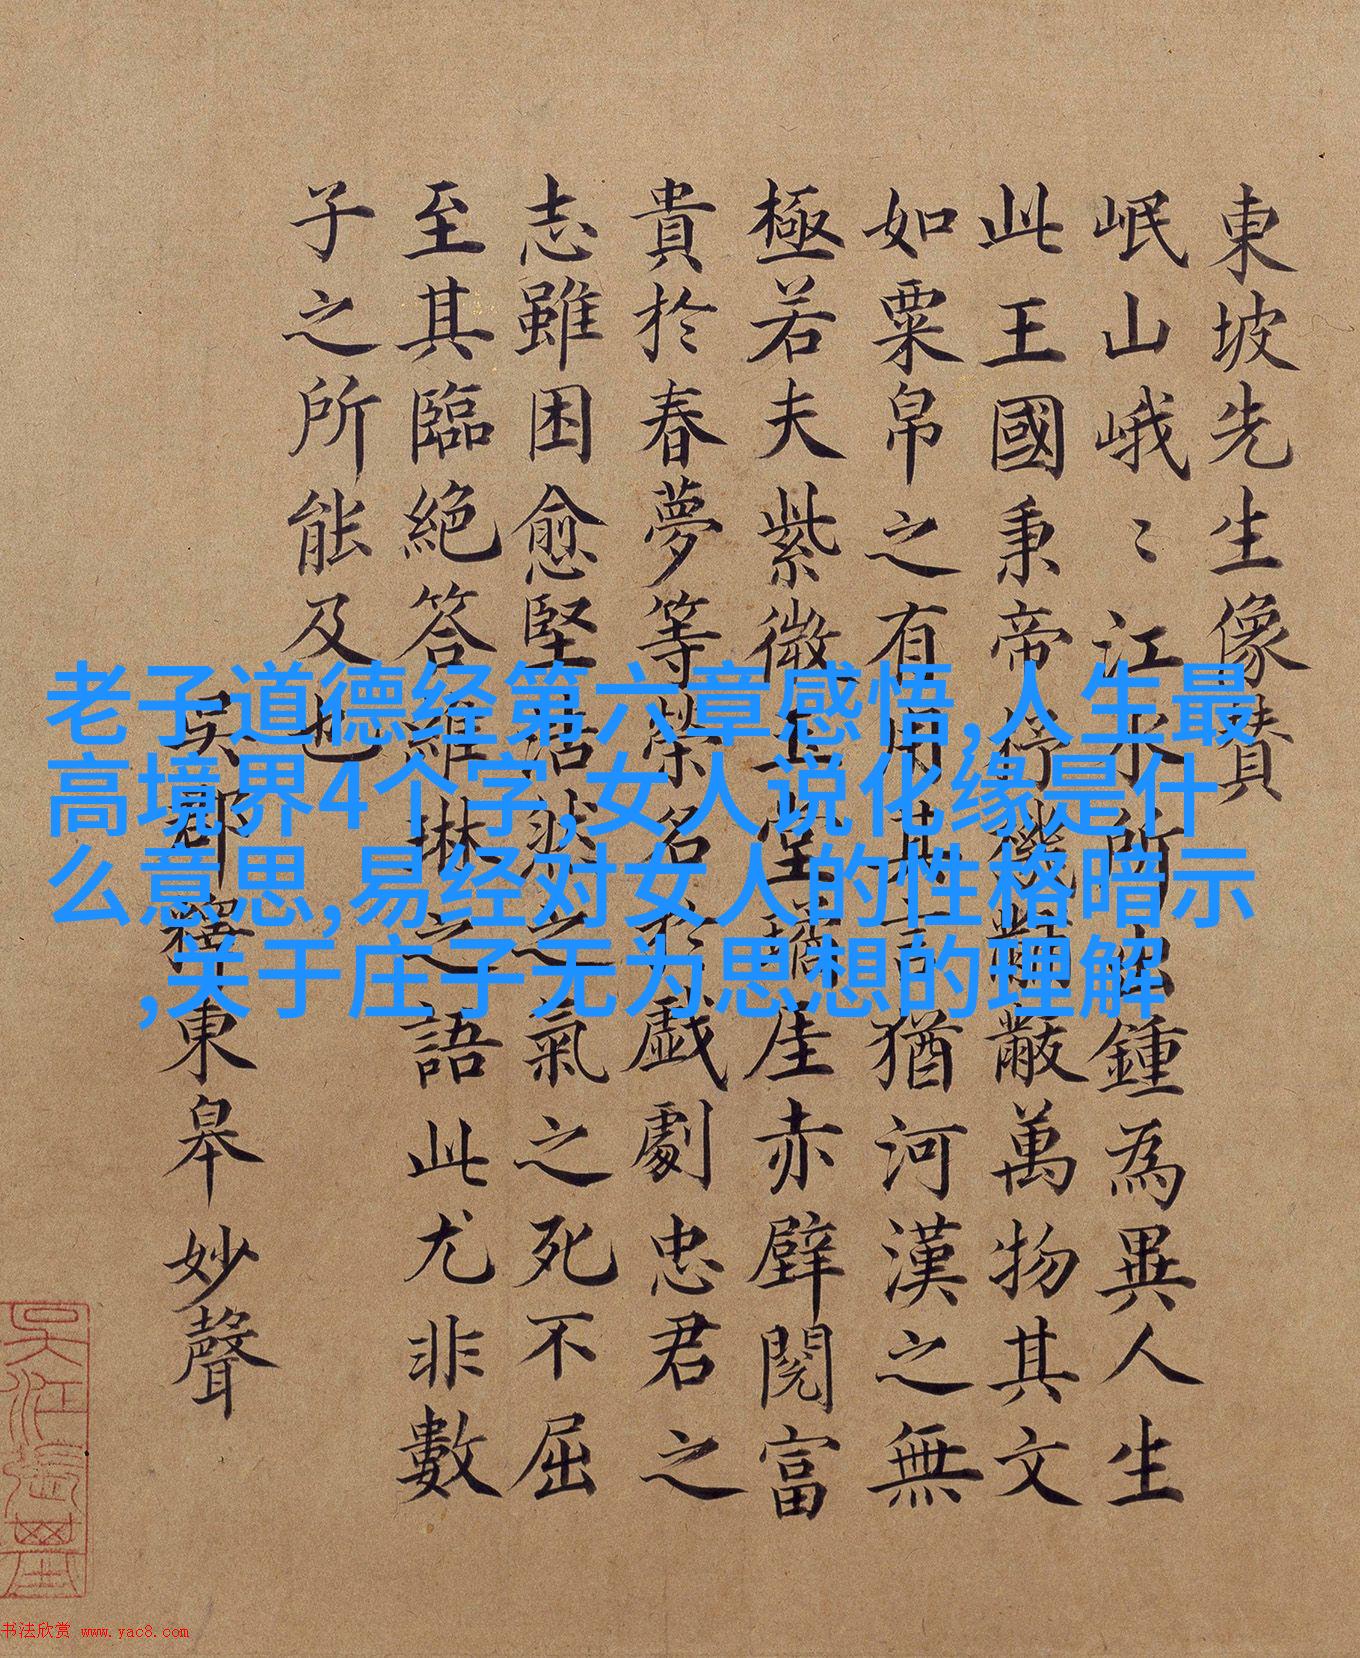 東坡先生像贊
岷山峨〻江水所出鍾為異人生
此王國秉帝杼機黼黻萬物其文
如粟帛之有用其言猶河漢之無
極若夫紫微玉堂瓊崖赤壁閱富
貴於春夢等榮名於戲劇忠君之
志雖困愈堅浩然之氣之死不屈
至其臨絕答維琳之語此尤非數
子之所能及也
吳郡釋東皋妙聲
老子道德经第六章感悟,人生最
高境界4个字,女人说化缘是什
么意思,易经对女人的性格暗示
,关于庄子无为思想的理解
书法欣赏 www.yac8.com